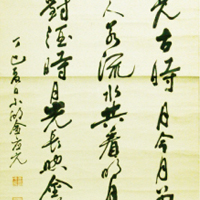 見古時月今月
人若流水共看明月
對酒時月光長映金
丁巳夏日小